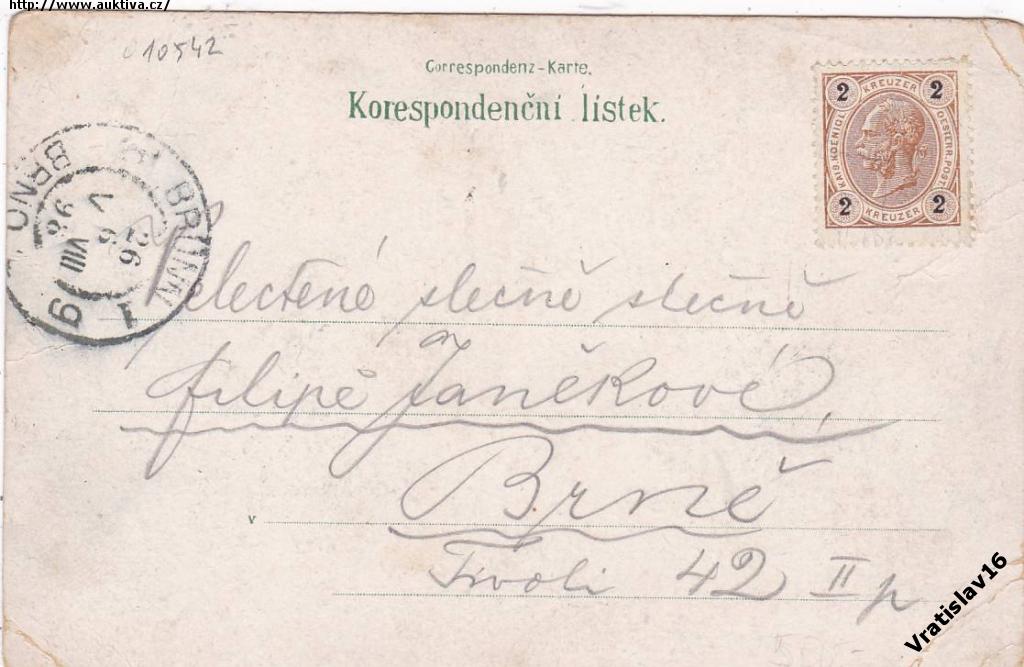 http://www.auktiva.cz/
010542
Correspondenz-Karte.
Korespondenční lístek.
2 KREUZER 2
KAIS. KOENIGL. OESTERR. POST.
2 KREUZER 2
BRÜNN BRNO
26
VIII
98
1
g
Velectěné slečně slečně
Filipě Janěkové,
v Brně
Tivoli 42 II p
Vratislav16